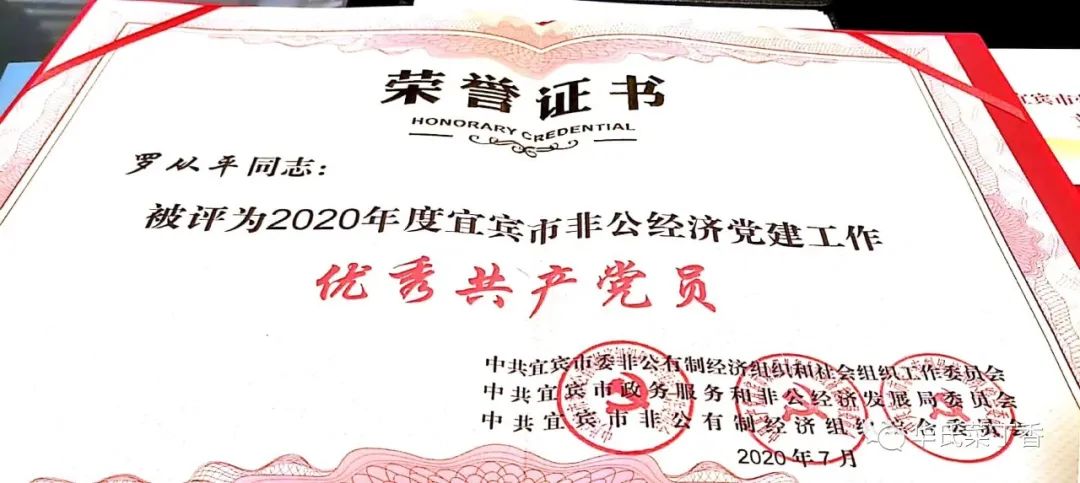 荣誉证书
HONORARY CREDENTIAL
罗从平同志：
被评为2020年度宜宾市非公经济党建工作
优秀共产党员
中共宜宾市委非公有制经济组织和社会组织工作委员会
中共宜宾市政务服务和非公经济发展局委员会
中共宜宾市非公有制经济组织综合委员会
2020年7月
宜宾市
华氏菜丁香